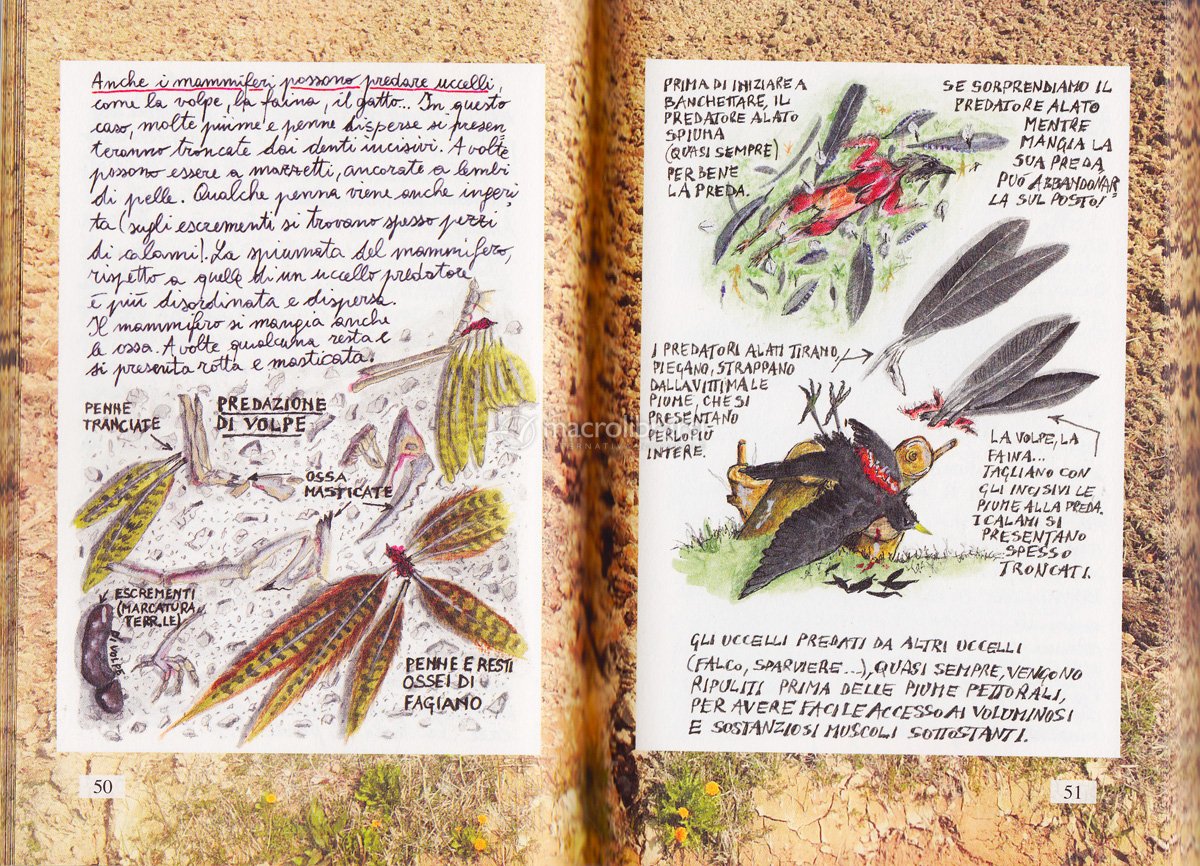 Anche i mammiferi possono predare uccelli,
come la volpe, la faina, il gatto.. In questo
caso, molte piume e penne disperse si presen
teranno troncate dai denti incisivi. A volte
possono essere a mazzetti, ancorate a lembi
di pelle. Qualche penna viene anche ingeri
ta (sugli escrementi si trovano spesso pezzi
di calami). La spiumata del mammifero,
rispetto a quella di un uccello predatore
è più disordinata e dispersa.
Il mammifero si mangia anche
le ossa. A volte qualcuna resta e
si presenta rotta e masticata.
PENNE
TRANCIATE
PREDAZIONE
DI VOLPE
OSSA
MASTICATE
ESCREMENTI
(MARCATURA
TERR.LE)
DI VOLPE
PENNE E RESTI
OSSEI DI
FAGIANO
50
PRIMA DI INIZIARE A
BANCHETTARE, IL
PREDATORE ALATO
SPIUMA
(QUASI SEMPRE)
PER BENE
LA PREDA.
SE SORPRENDIAMO IL
PREDATORE ALATO
MENTRE
MANGIA LA
SUA PREDA
PUÒ ABBANDONAR
LA SUL POSTO!
I PREDATORI ALATI TIRANO,
PIEGANO, STRAPPANO
DALLA VITTIMA LE
PIUME, CHE SI
PRESENTANO
PERLOPIÙ
INTERE.
LA VOLPE, LA
FAINA...
TAGLIANO CON
GLI INCISIVI LE
PIUME ALLA PREDA.
I CALAMI SI
PRESENTANO
SPESSO
TRONCATI.
GLI UCCELLI PREDATI DA ALTRI UCCELLI
(FALCO, SPARVIERE...), QUASI SEMPRE, VENGONO
RIPULITI PRIMA DELLE PIUME PETTORALI,
PER AVERE FACILE ACCESSO AI VOLUMINOSI
E SOSTANZIOSI MUSCOLI SOTTOSTANTI.
51